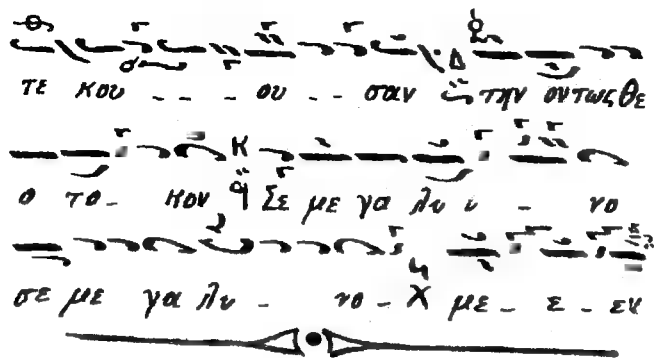 τε κου - - - ου - - σαν την οντως θε
ο το - κον Σε με γα λυ υ - νο
σε με γα λυ - νο - με - ε - εν